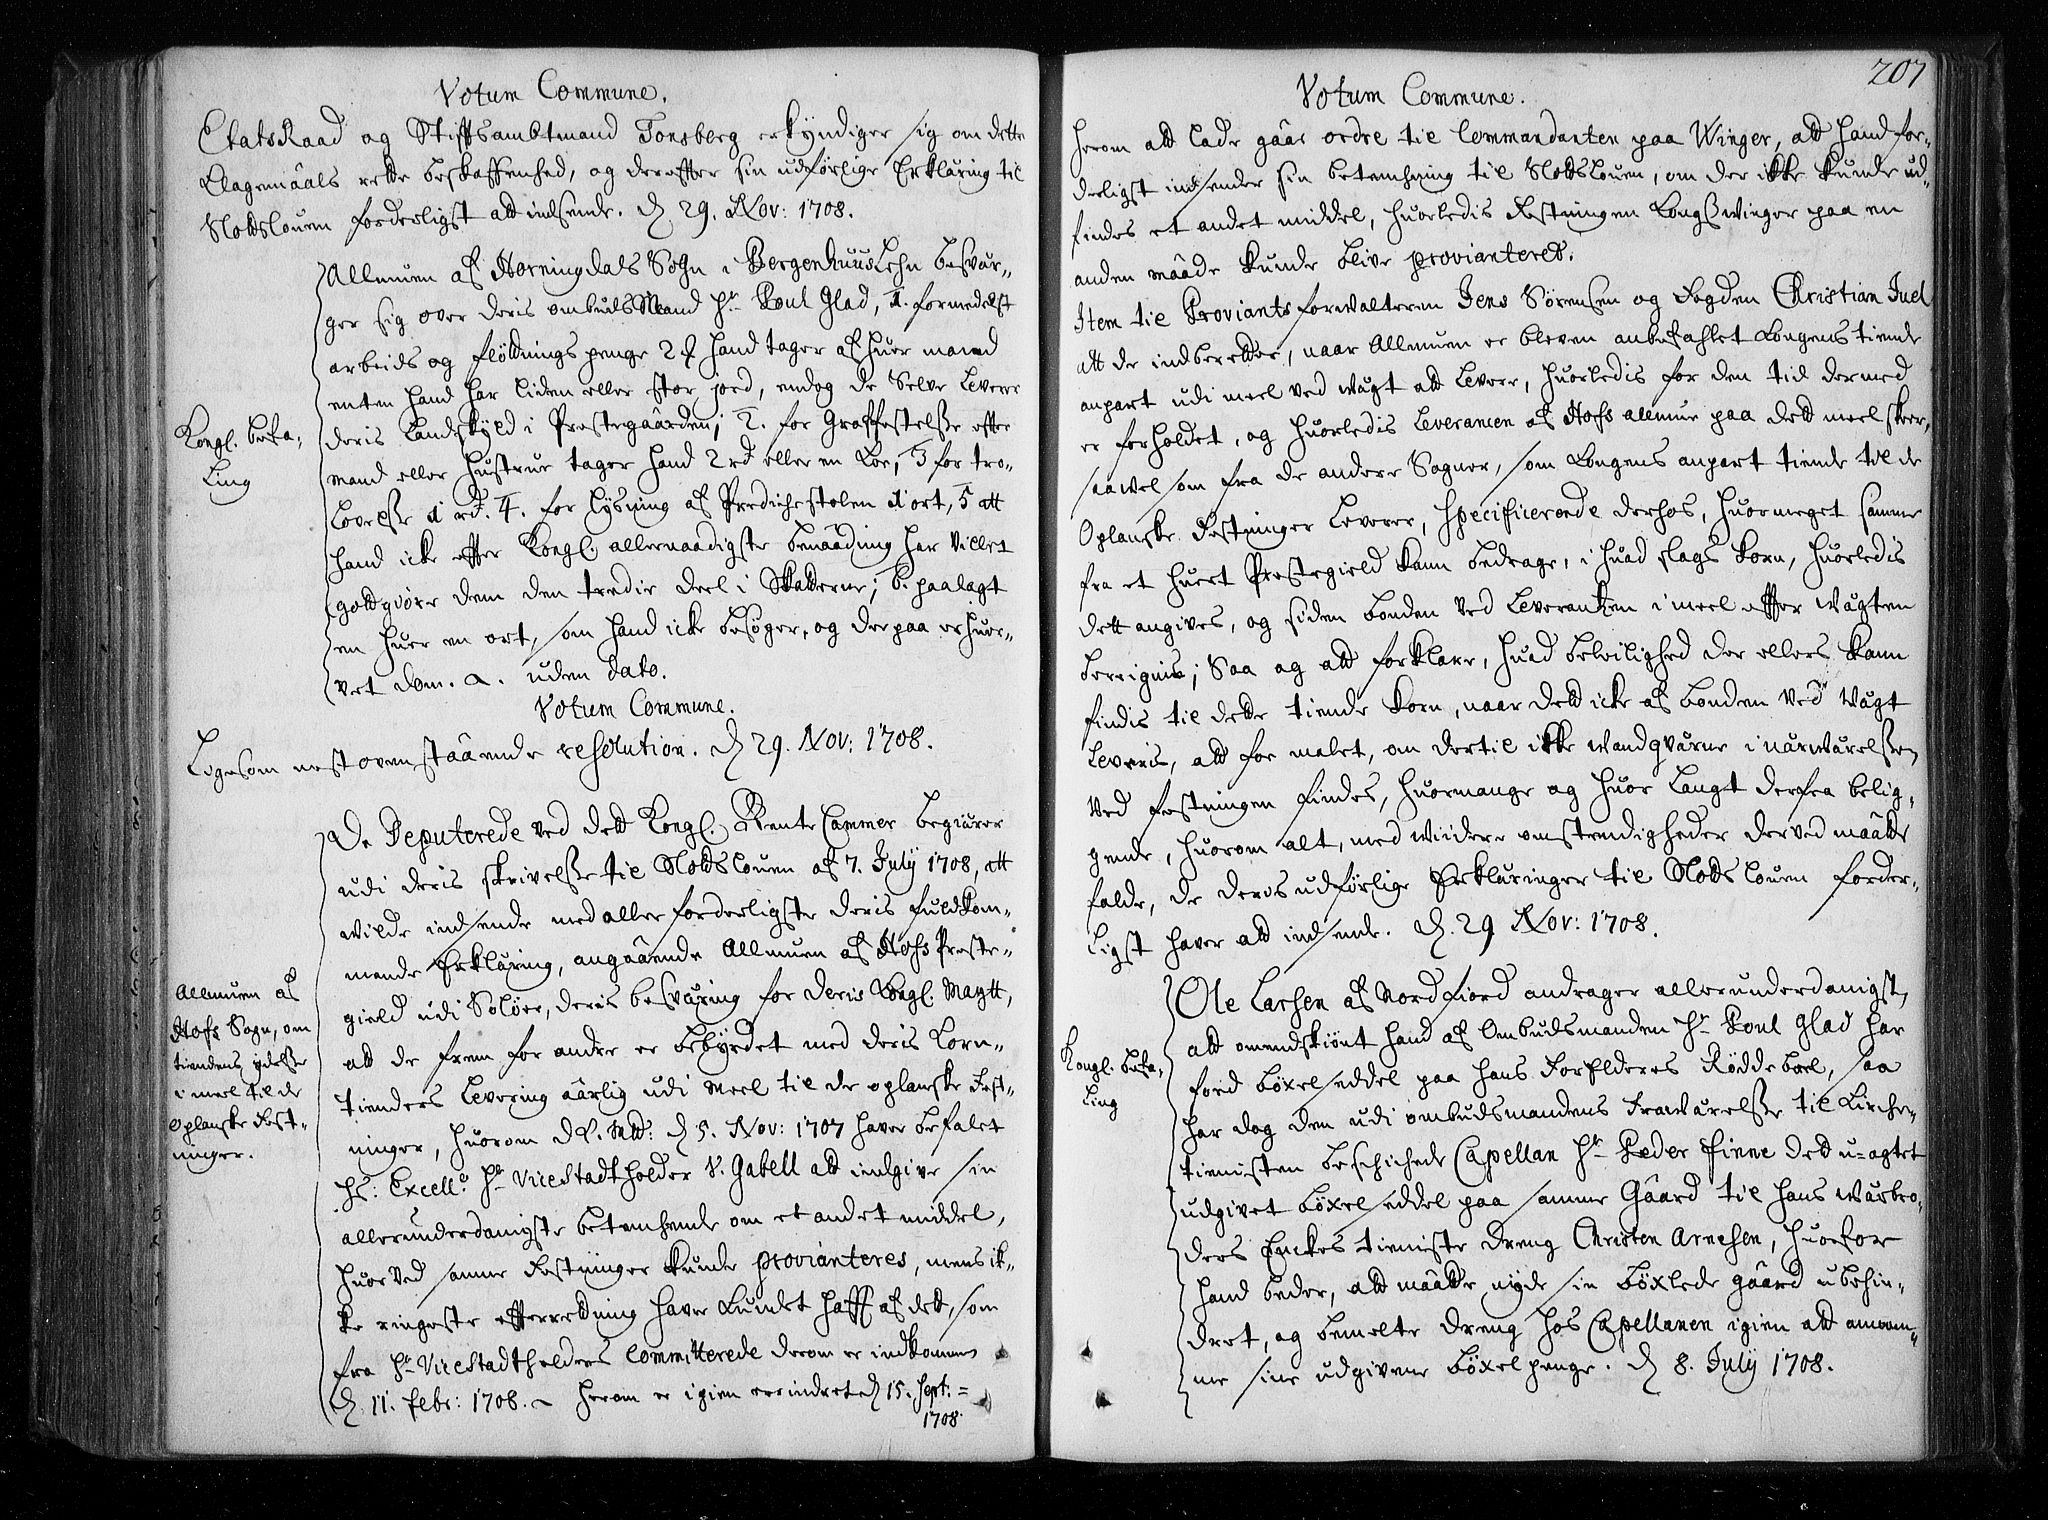 Votum Commune.
EtatsRaad og Stiftsambtmand Tonsberg erkyndiger sig om dette
Klagemaals rette beskaffenhed, og derefter sin udførlige Erklæring til
Slodslouen forderligst att indsende. D. 29. Nov: 1708.
Allmuen af Horningdals Sogn i BergenhuusLehn besvær-
ger sig over deris ombudsMand Hr. Poul Glad, 1. formedelst
arbeids og flødnings penge 2 hand tager af huer mand
enten hand har liden eller stor jord, endog de Selve Leverer
deris Landskyld i Prestegaarden; 2. for Graffestelsse efter
Kongl. befa-
ling
mand eller Hustrue tager hand 2 rd eller en Koe, 3 for tro-
lovelsse 1 rd. 4. for lysning af Predichestolen 1 ort, 5 att
hand icke efter Kongl. allernaadigste benaading har villet
godtgiøre dem den tredie deel i Skatterne; 6. paalagt
en huer en ort, som hand icke besøger, og derpaa erhuer-
vet dom. a. uden dato.
Votum Commune.
Ligesom nest ovenstaaende resolution. D 29. Nov: 1708.
De Deputerede ved dett Kongl. RenteCammer begiærer
udi deris skrivelsse til Slodslouen af 7. July 1708, att
wilde indsende med aller forderligste deris fuldkom-
mende Erklæring, angaaende Allmuen af Hofs Preste-
gield udi Soløer, deris besværing for deris Kongl. Maytt,
Allmuen af
Hofs Sogn, om
tiendens ydelsse
i meel til de
oplanske Fest-
ninger.
att de frem for andre er bebyrdet med deris Korn-
tienders Levering aarlig udi Meel til de oplanske Fest-
ninger, huorom D. K. Mtt: D 5. Nov: 1707 haver befalet
Hs: Excell: Hr ViceStadtholder V. Gabell att indgive sin
allerunderdanigste betenchende om et andet middel,
huorved samme Festninger kunde provianteres, mens ik-
ke ringeste efterretning haver kundet haff af dett, som
fra Hr. ViceStadtholders Committerede derom er indkommen
D. 11. Febr: 1708. Herom er igien erindret D 15. Sept: =
1708.
207
Votum Commune.
Herom att lade gaae ordre til Commandanten paa Winger, att hand for-
derligst indsender sin betenchning til Slodslouen, om der ikke kunde ud-
findes et andet middel, huorledis Festningen Kongsswinger paa en
anden maade kunde blive provianteret.
Item til Proviantsforwalteren Jens Sørensen og Fogden Christian Juel
att de indberetter, naar Allmuen er bleven anbefahlet Kongens tiende
anpart udi meel ved wægt att Levere, huorledis for den tid dermed
er forholdet, og huorledis Leverancen af Hofs allmue paa dett meel skeer,
saawel som fra de andere Sogner, som Kongens anpart tiende til de
Oplanske Festninger Leverer, specificerende derhos, huormeget samme
fra et huert Prestegield kann bedrage, i huad slags korn, huorledis
dett angives, og siden bonden ved Leverantzen i meel efter wægten
berignis; Saa og att forklare, huad beleilighed der ellers kann
findis til dette tiende korn, naar dett icke af bonden ved wægt
Leveris, att for malet, om dertil ikke wandqværne i nærwærelssen
ved festningen findes, huormange og huor langt derfra belig-
gende, huorom alt, med wiidere omstendigheder derved maatte
falde, de deres udførlige Erklæringer til Slods Louen forder-
ligst haver att indsende. D. 29 Nov: 1708.
Ole Larsen af Nordfiord andrager allerunderdanigst,
att omendskiønt hand af Ombudsmanden Hr. Poul Glad har
Kongl. befa-
ling
foed bøxelseddel paa hans Forfelderes Rødde boel, saa
har dog den udi ombudsmandens Frawærelsse til Kirche-
tienisten beschichede Capellan Hr. Peder Finne dett u-agtet
udgivet bøxelseddel paa samme Gaard til hans warbro-
ders Enckes tieniste dreng Christen Arnesen, huorfor
hand beder, att maatte nyde sin bøxlede gaard ubehin-
dret, og bemelte dreng hos Capellanen igien att annam-
me sine udgivene bøxelpenge. D 8. July 1708.